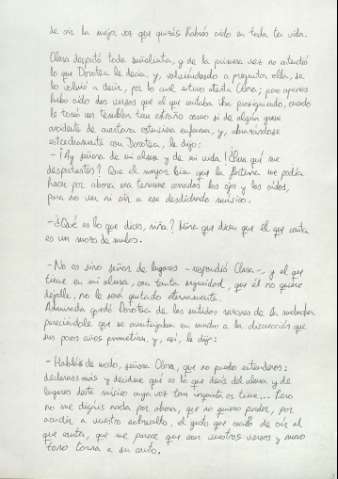 de oír la mejor voz que quizás habrás oído en toda tu vida.
Clara despertó toda soñolienta, y de la primera vez no entendió
lo que Dorotea le decía, y, volviéndoselo a preguntar ella, se
lo volvió a decir, por lo cual estuvo atenta Clara; pero apenas
hubo oído dos versos que el que cantaba iba prosiguiendo, cuando
le tomó un temblor tan extraño como si de algún grave
accidente de cuartana estuviera enferma, y, abrazándose
estrechamente con Dorotea, le dijo:
- ¡Ay señora de mi alma y de mi vida! ¿Para qué me
despertastes? Que el mayor bien que la fortuna me podía
hacer por ahora era tenerme cerrados los ojos y los oídos,
para no ver ni oír a ese desdichado músico.
- ¿Qué es lo que dices, niña? Mira que dicen que el que canta
es un mozo de mulas.
- No es sino señor de lugares - respondió Clara -, y el que
tiene en mi alma, con tanta seguridad, que si él no quiere
dejalle, no le será quitado eternamente.
Admirada quedó Dorotea de las sentidas razones de la muchacha
pareciéndole que se aventajaban en mucho a la discreción que
sus pocos años prometían, y, así, le dijo:
- Habláis de modo, señora Clara, que no puedo entenderos:
declaraos más y decidme qué es lo que decís del alma y de
lugares deste músico cuya voz tan inquieta os tiene... Pero
no me digáis nada por ahora, que no quiero perder, por
acudir a vuestro sobresalto, el gusto que recibo de oír al
que canta, que me parece que con nuevos versos y nuevo
tono torna a su canto.